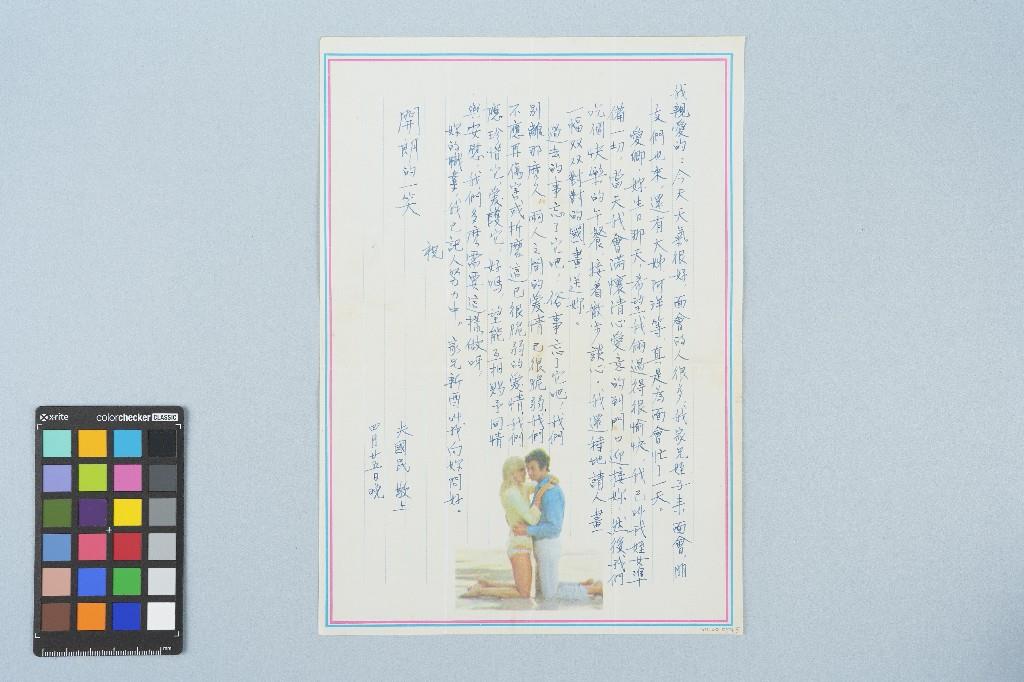 我親愛的：今天天氣很好，面會的人很多，我家兄姪子來面會，朋
友們也來，還有大姊阿洋等真是為面會忙了一天。
愛卿：妳生日那天，希望我倆過得很愉快，我已叫我姪女準
備一切，當天我會滿懷情心愛意的到門口迎接妳，然後我們
吃個快樂的午餐，接着散步，談心，我還特地請人畫
一幅双双對對的國畫送妳。
過去的事忘了它吧，俗事忘了它吧，我們
別離那麼久，兩人之間的愛情已很脆弱，我們
不應再傷害或折磨這已很脆弱的愛情，我們
應珍惜它，愛護它，好嗎，望能互相賜予同情
與安慰，我們多麼需要這樣做呀。
妳的職業，我已託人努力中。家兄新酉叫我向妳問好。
祝
開朗的一笑
夫國民 敬上
四月廿五日晚
x-rite
colorchecker CLASSIC
mm